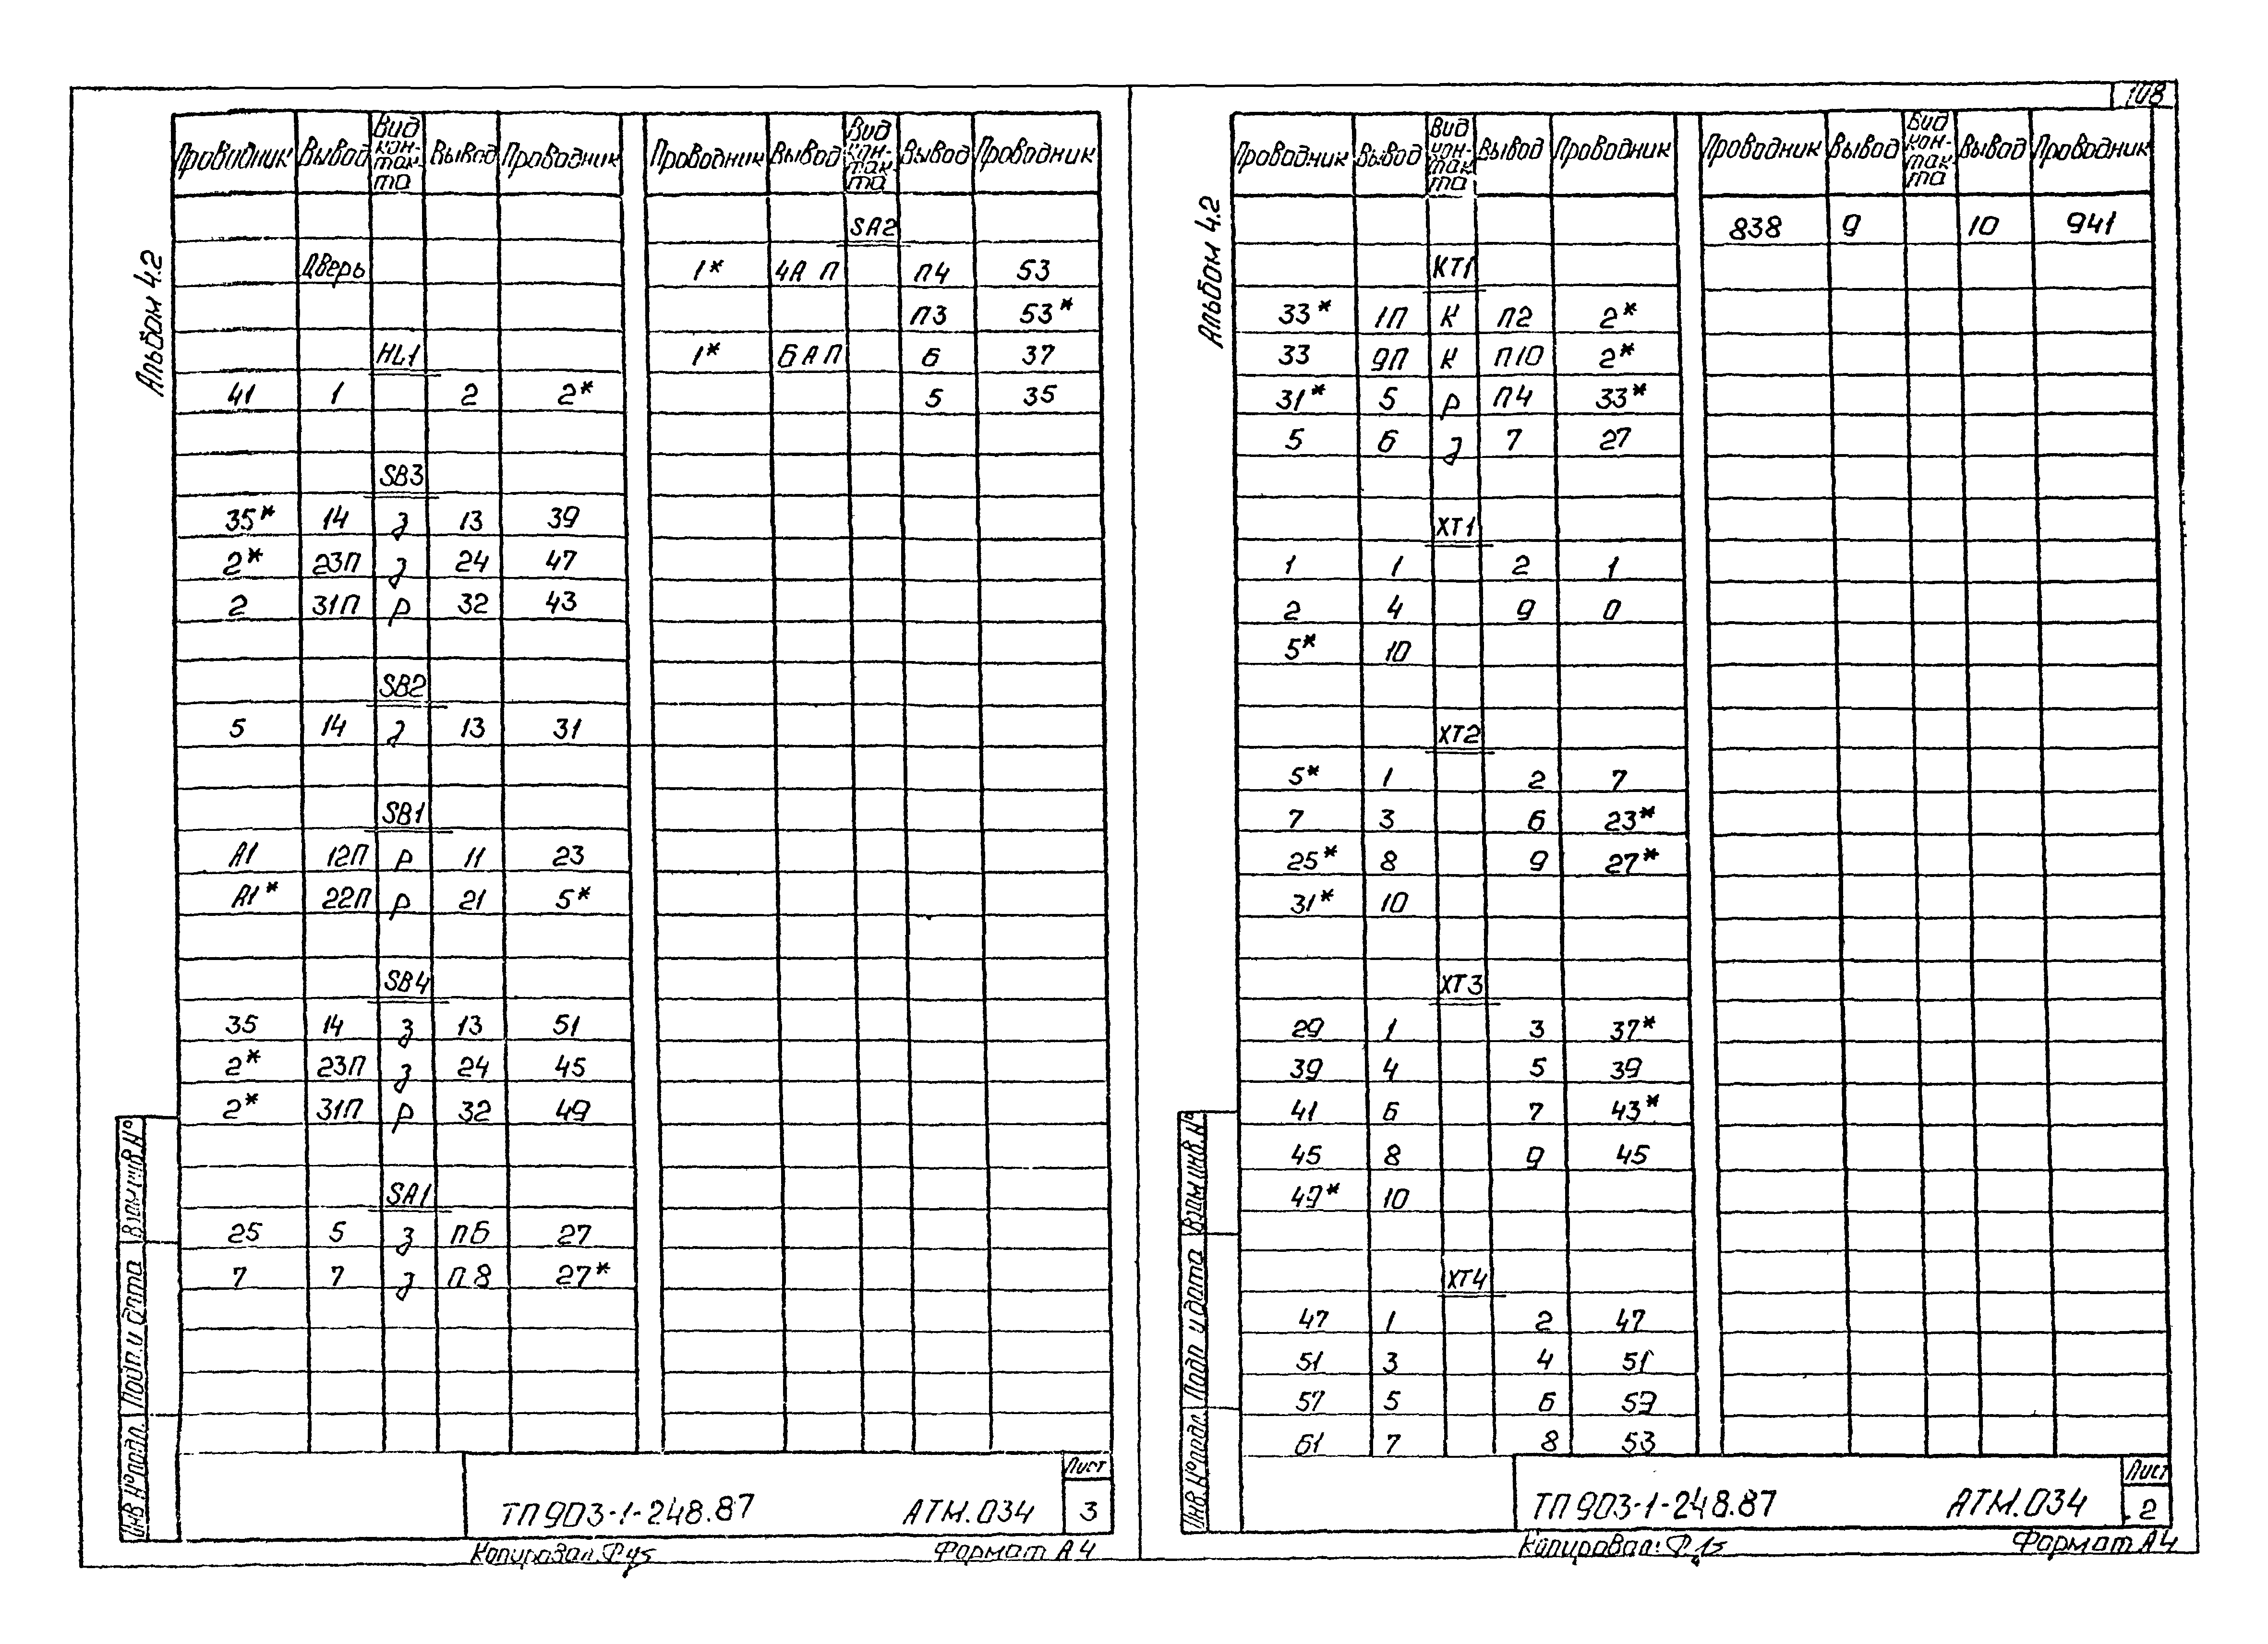 108
Альбом 4.2
Проводник Вывод Вид кон-так-та Вывод Проводник Проводник Вывод Вид кон-так-та Вывод Проводник
SA2
Дверь 1* 4А П П4 53
П3 53*
HL1 1* 6 А П 6 37
41 1 2 2* 5 35
SB3
35* 14 з 13 39
2* 23П з 24 47
2 31П р 32 43
SB2
5 14 з 13 31
SB1
А1 12П р 11 23
А1* 22П р 21 5*
SB4
35 14 з 13 51
2* 23П з 24 45
2* 31П р 32 49
SA1
25 5 з П6 27
7 7 з П 8 27*
Инв. № подл. Подп. и дата Взам инв. №
ТП 903-1-248.87 АТМ.034 Лист 3
Копировал: Формат А4
Альбом 4.2
Проводник Вывод Вид кон-так-та Вывод Проводник Проводник Вывод Вид кон-так-та Вывод Проводник
838 9 10 941
КТ1
33* 1П К П2 2*
33 9П К П10 2*
31* 5 р П4 33*
5 6 з 7 27
ХТ1
1 1 2 1
2 4 9 0
5* 10
ХТ2
5* 1 2 7
7 3 6 23*
25* 8 9 27*
31* 10
ХТ3
29 1 3 37*
39 4 5 39
41 6 7 43*
45 8 9 45
49* 10
ХТ4
47 1 2 47
51 3 4 51
57 5 6 59
61 7 8 53
Инв. № подл. Подп и дата Взам инв. №
ТП 903-1-248.87 АТМ.034 Лист 2
Копировал: Формат А4